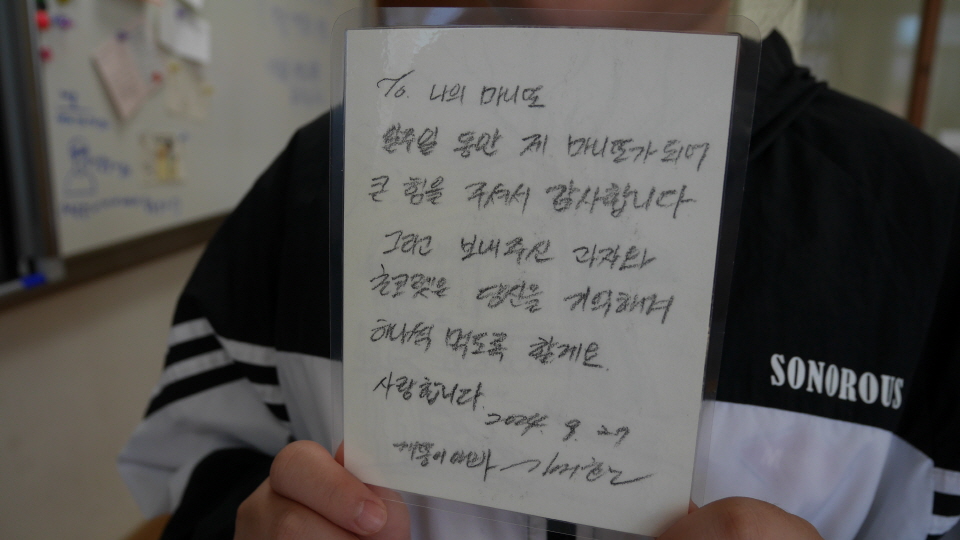 To. 나의 마니또
일주일 동안 제 마니또가 되어
큰 힘을 주셔서 감사합니다
그리고 보내주신 과자와
초코렛은 당신을 기억하며
하나씩 먹도록 할게요.
사랑합니다.
2024. 9. 27
SONOROUS